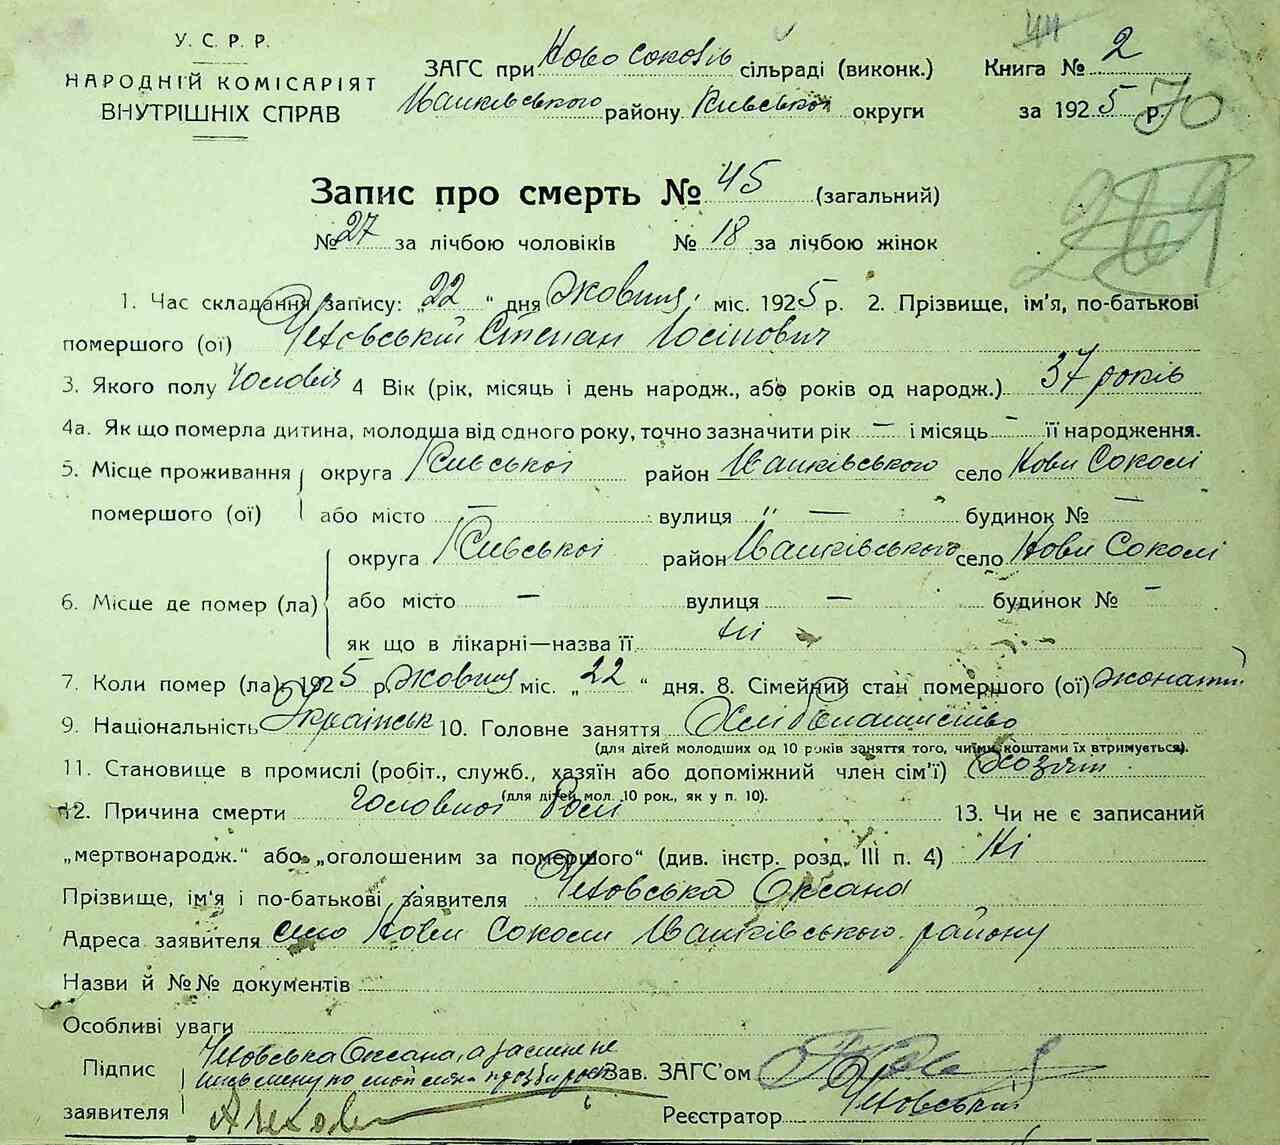 У. С. Р. Р.
НАРОДНІЙ КОМІСАРІЯТ
ВНУТРІШНІХ СПРАВ
44
ЗАГС при Ново Соколів сільраді (виконк.) Книга № 2
Іванківського району Київської округи за 1925 р. 70
Запис про смерть № 45 (загальний)
№ 27 за лічбою чоловіків № 18 за лічбою жінок
1. Час складання запису: „22 " дня Жовтня міс. 1925 р. 2. Прізвище, ім'я, по-батькові
помершого (ої) Чеховський Степан Іосіпович
3. Якого полу Чоловіч 4 Вік (рік, місяць і день народж., або років од народж.) 37 років
4а. Як що померла дитина, молодша від одного року, точно зазначити рік — і місяць — її народження.
5. Місце проживання округа Київської район Іванківського село Нови Соколи
помершого (ої) або місто — вулиця " — будинок № —
округа Київської район Іванківського село Нови Соколи
6. Місце де помер (ла) або місто — вулиця — будинок № —
як що в лікарні—назва її Ні
7. Коли помер (ла): 1925 р. Жовтня міс. „22 " дня. 8. Сімейний стан помершого (ої) жонатий
9. Національність Українськ 10. Головне заняття Хліборобство
(для дітей молодших од 10 років заняття того, чиїми коштами їх втримується).
11. Становище в промислі (робіт., служб., хазяїн або допоміжний член сім'ї) Хозяїн
(для дітей мол. 10 рок., як у п. 10).
12. Причина смерти Головної болі 13. Чи не є записаний
„мертвонародж." або „оголошеним за помершого" (див. інстр. розд. III п. 4) Ні
Прізвище, ім'я і по-батькові заявителя Чеховська Оксана
Адреса заявителя село Нови Соколи Іванківського району
Назви й №№ документів
Особливі уваги
Підпис Чеховська Оксана, а за неї не
письменну по
заявителя АЧехов
Зав. ЗАГС'ом
Реєстратор Чеховський